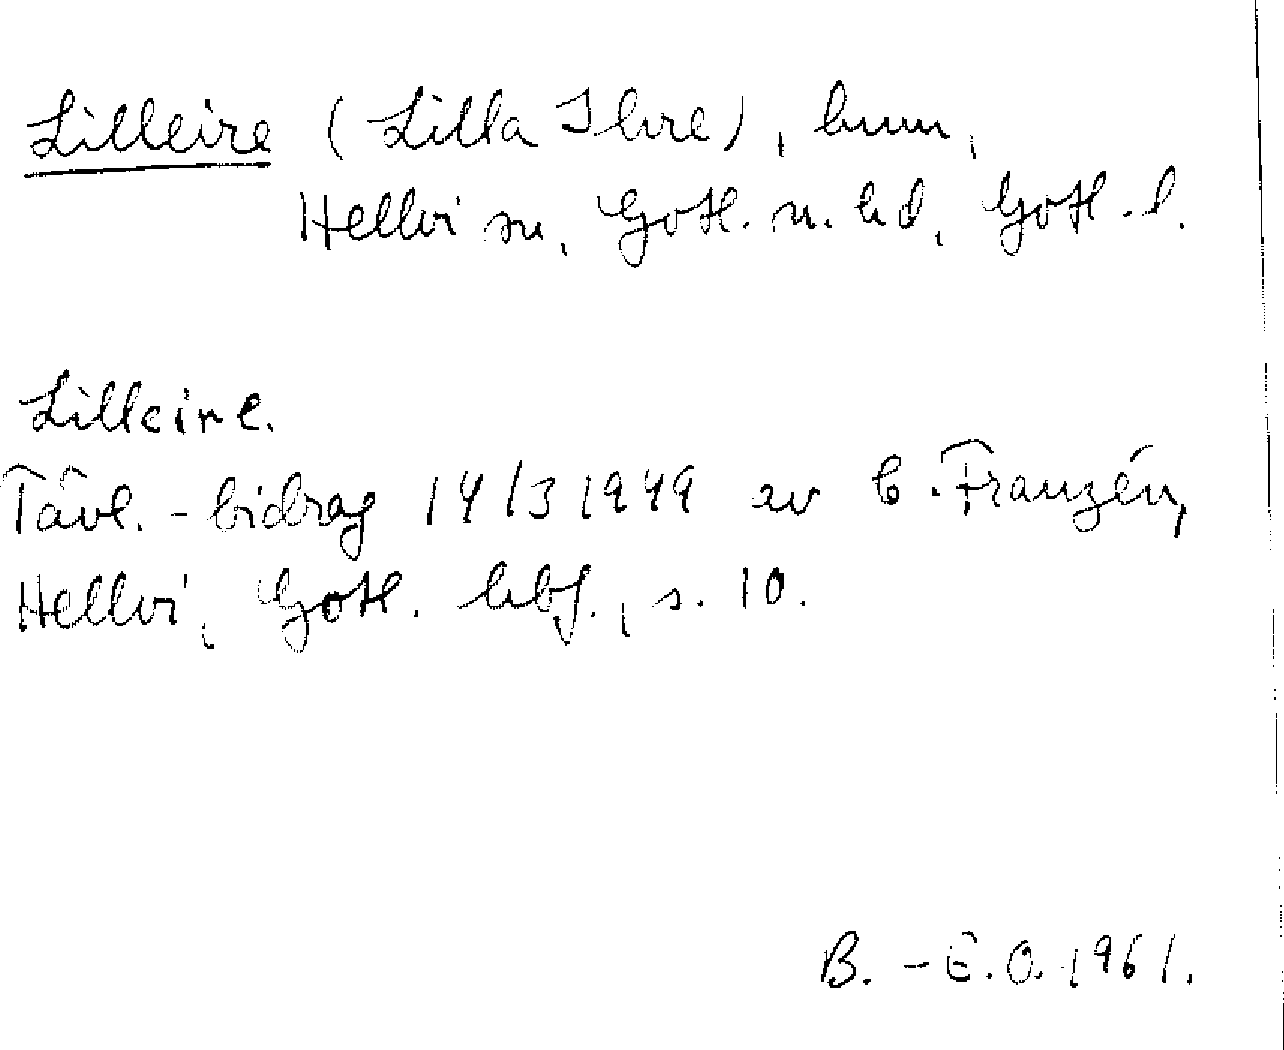 Lilleire (Lilla Ihre), hmn,
Hellvi sn, Gotl. n. hd, Gotl. l.
Lilleire.
Tävl.-bidrag 14/3 1949 av C. Franzén,
Hellvi, Gotl. hbf., s. 10.
B.-E.O. 1961.